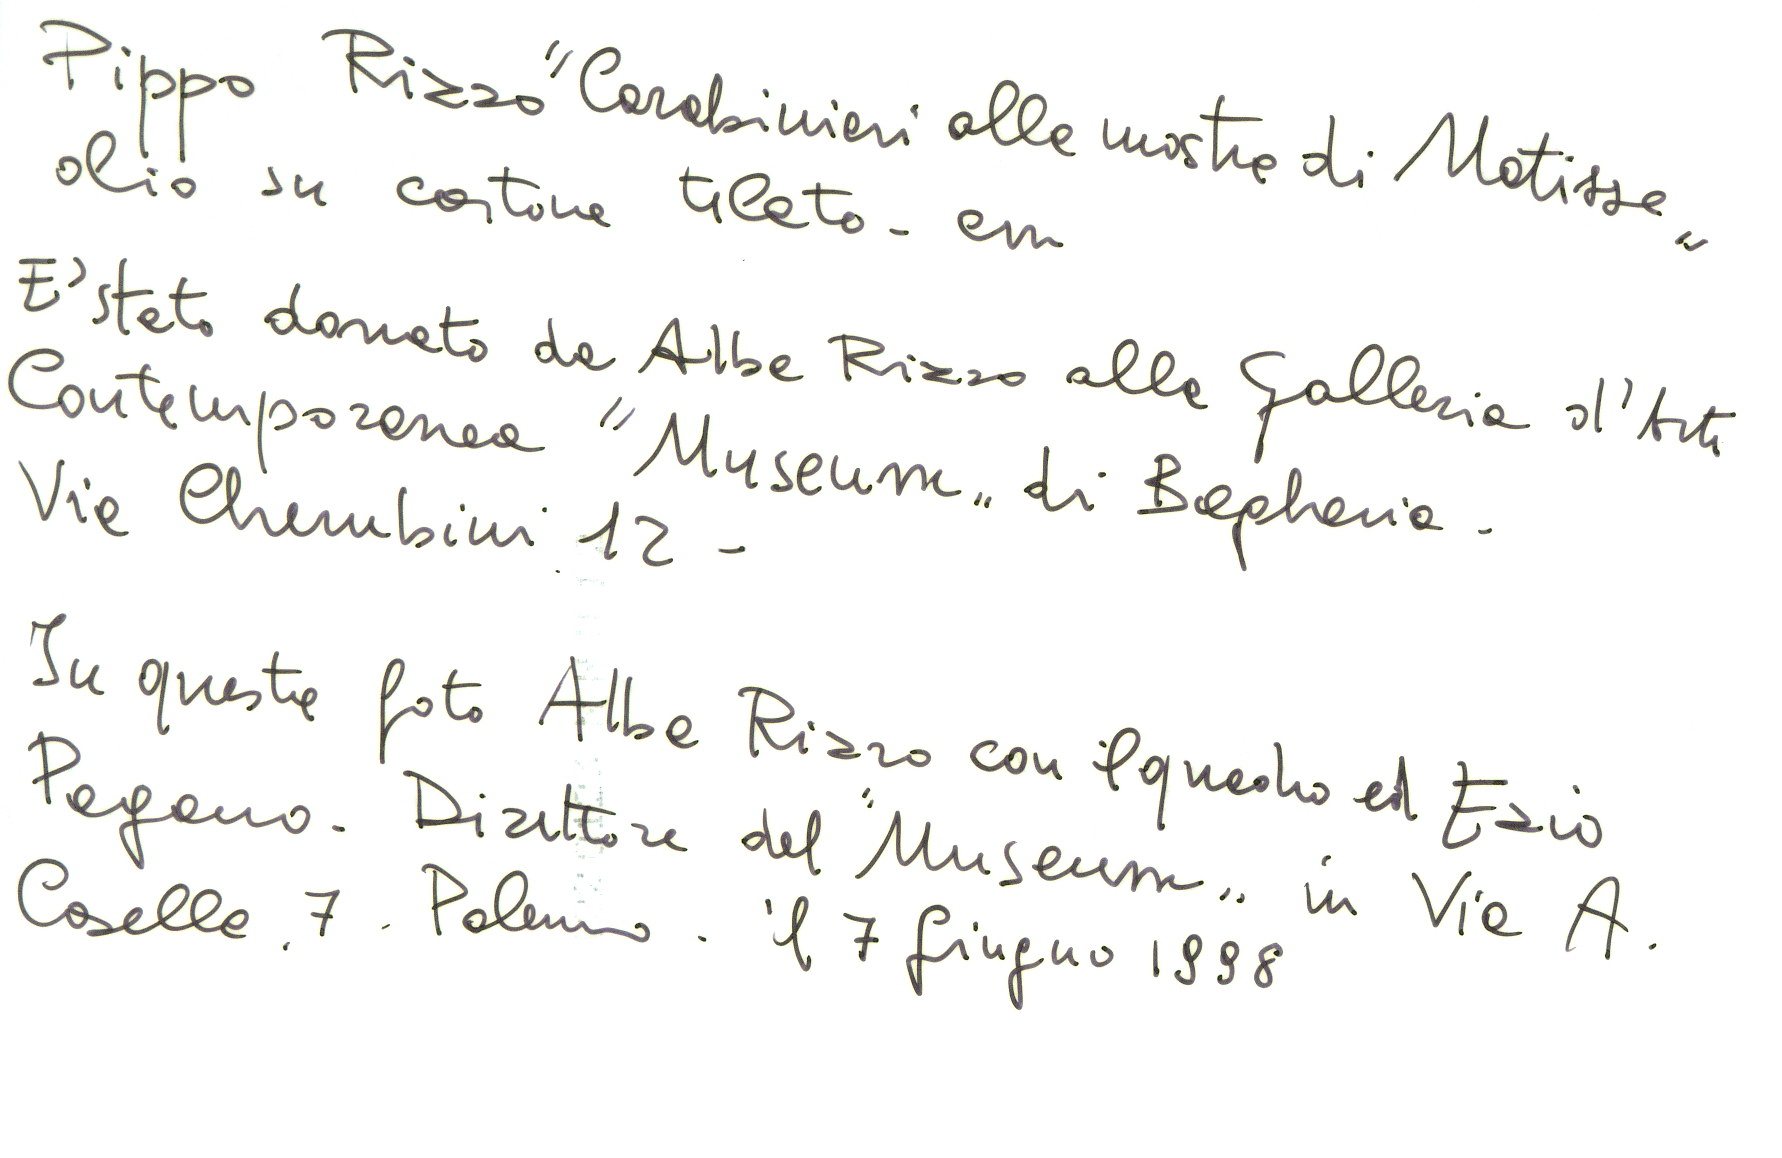 Pippo Rizzo "Carabinieri alla mostra di Matisse"
olio su cartone telato - cm
E' stato donato da Alba Rizzo alla Galleria d'Arte
Contemporanea "Museum" di Bagheria -
Via Cherubini 12 -
In questa foto Alba Rizzo con il quadro ed Ezio
Pagano - Direttore del "Museum" in Via A.
Caselle, 7 - Palermo. il 7 giugno 1998